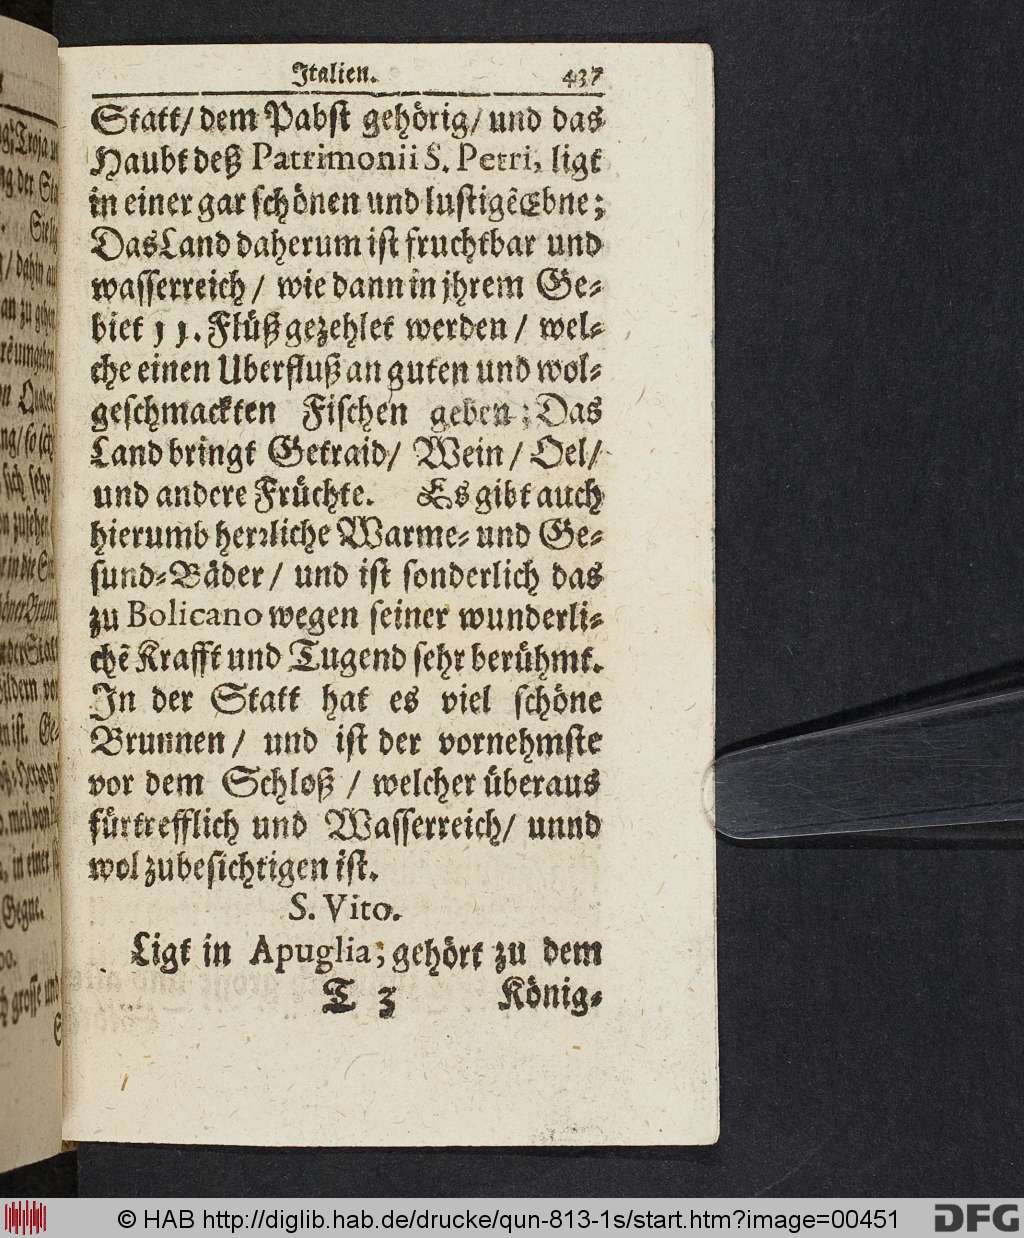 Italien. 437
Statt/ dem Pabst gehörig/ und das
Haubt deß Patrimonii S. Petri, ligt
in einer gar schönen und lustigẽ Ebne;
Das Land daherum ist fruchtbar und
wasserreich/ wie dann in jhrem Ge-
biet 11. Flüß gezehlet werden/ wel-
che einen Uberfluß an guten und wol-
geschmackten Fischen geben; Das
Land bringt Getraid/ Wein/ Oel/
und andere Früchte. Es gibt auch
hierumb herrliche Warme- und Ge-
sund-Bäder/ und ist sonderlich das
zu Bolicano wegen seiner wunderli-
chẽ Krafft und Tugend sehr berühmt.
In der Statt hat es viel schöne
Brunnen/ und ist der vornehmste
vor dem Schloß/ welcher überaus
fürtrefflich und Wasserreich/ unnd
wol zubesichtigen ist.
S. Vito.
Ligt in Apuglia; gehört zu dem
T 3 König-
© HAB http://diglib.hab.de/drucke/qun-813-1s/start.htm?image=00451
DFG